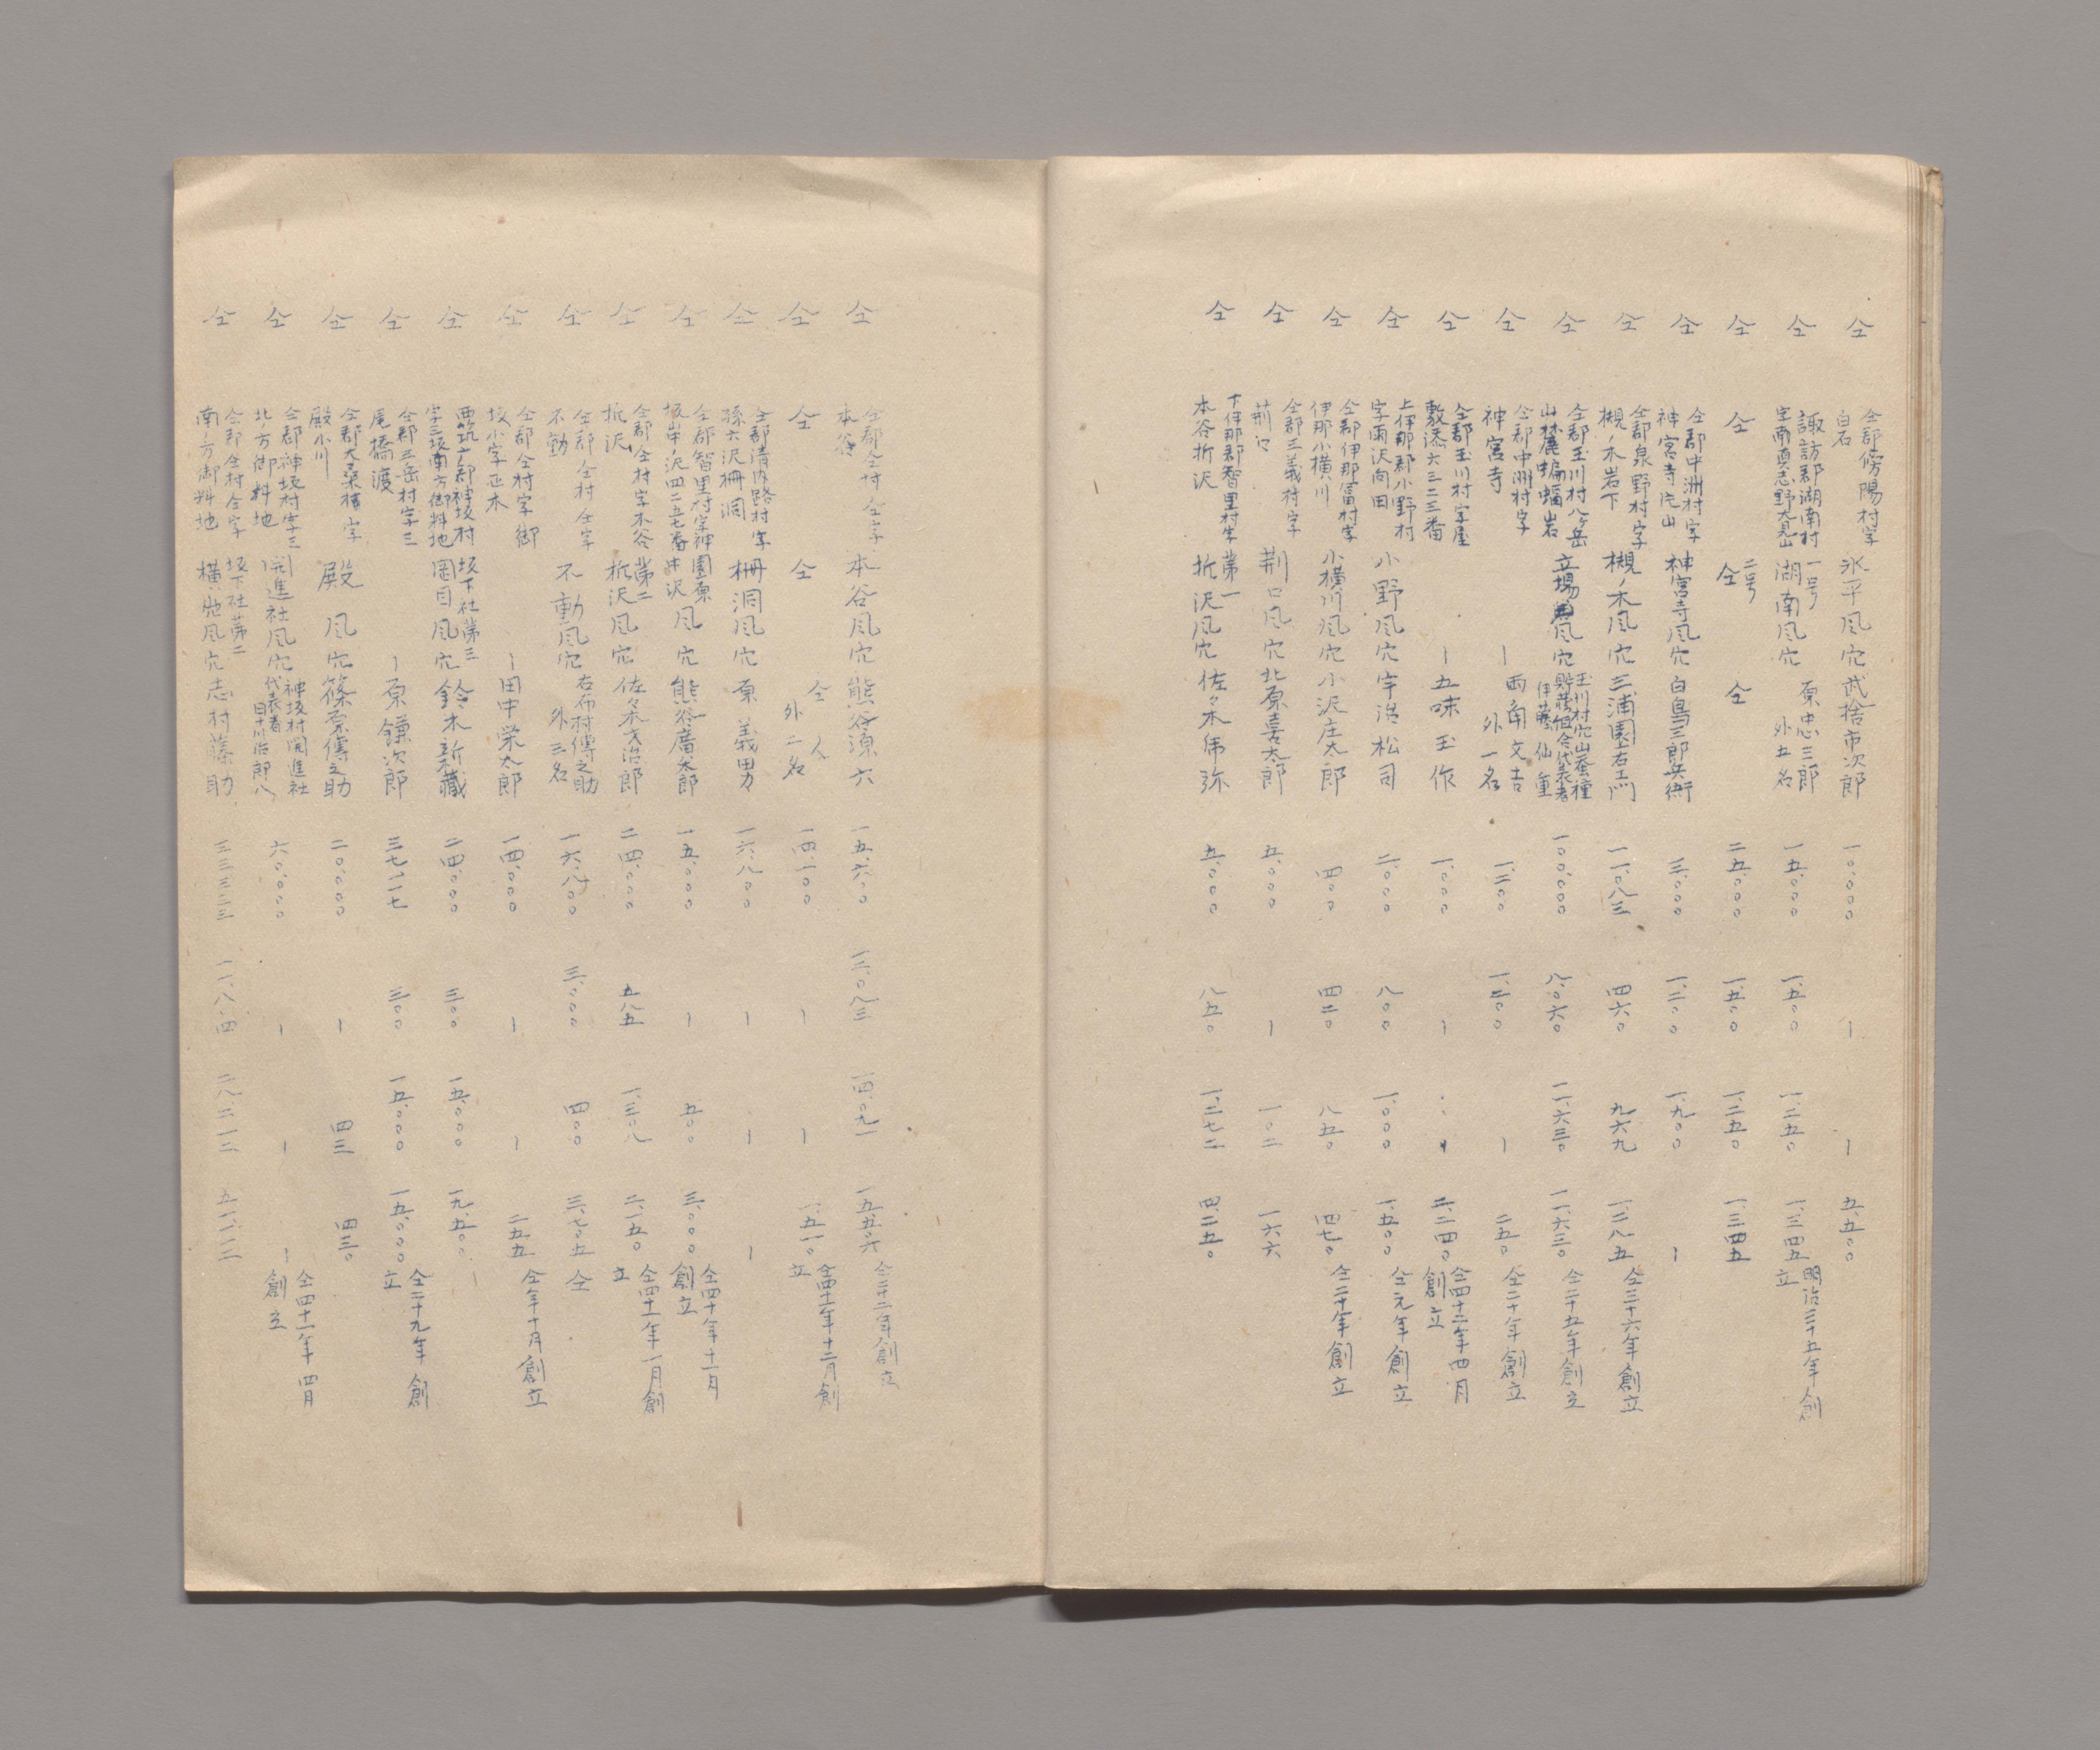 仝 仝郡傍陽村字白石 氷平風穴 武捨市次郎 一〇、〇〇〇 ー ー 五、五〇〇
仝 諏訪郡湖南村字南真志野大見山 一号湖南風穴 原忠三郎外五名 一五、〇〇〇 一、五〇〇 一、二五〇 一、三四五 明治三十五年創立
仝 仝 二号仝 仝 二五、〇〇〇 一、五〇〇 一、二五〇 一、三四五
仝 仝郡中洲村字神宮寺片山 神宮寺風穴 白鳥三郎兵衛 三、〇〇〇 一、二〇〇 一、九〇〇 ー
仝 仝郡泉野村字槻ノ木岩下 槻ノ木風穴 三浦園右エ門 一一、〇八三 四六〇 九六九 一、二八五 仝三十六年創立
仝 仝郡玉川村八ヶ岳山林麓蝙蝠岩 立場風穴 玉川村穴山蚕種貯蔵組合代表者伊藤仙重 一〇〇、〇〇〇 八、〇六〇 一一、六三〇 一一、六三〇 仝二十五年創立
仝 仝郡中洲村字神宮寺 ー 両角文吉外一名 一、三〇〇 一、三〇〇 ー 二五〇 仝二十年創立
仝 仝郡玉川村字屋敷添六三二三番 ー 五味玉作 一、〇〇〇 ー 二、二四〇 仝四十三年四月創立
仝 上伊那郡小野村字雨沢向田 小野風穴 宇治松司 二、〇〇〇 八〇〇 一、〇〇〇 一、五〇〇 仝元年創立
仝 仝郡伊那富村字伊那小横川 小横川風穴 小沢庄太郎 四〇〇 四二〇 八五〇 四七〇 仝二十年創立
仝 仝郡三義村字荊口 荊口風穴 北原喜太郎 五、〇〇〇 ー 一〇二 一六六
仝 下伊那郡智里村字本谷折沢 第一折沢風穴 佐々木弗弥 五、〇〇〇 八五〇 一、二七二 四、二五〇
仝 仝郡仝村仝字本谷 本谷風穴 熊谷源六 一五、六〇〇 一三、〇八三 一四、〇九一 一五、五〇六 仝二十二年創立
仝 仝 仝 仝人外二名 一四、一〇〇 ー ー 一、五一〇 仝四十一年十二月創立
仝 仝郡清内路村字孫六沢柵洞 柵洞風穴 原義男 一六、八〇〇 ー ー ー
仝 仝郡智里村字神坂岸ノ沢四二五七番 園原中沢風穴 熊谷廣太郎 一五、〇〇〇 ー 五〇〇 三、〇〇〇 仝四十年十一月創立
仝 仝郡仝村字本谷折沢 第二折沢風穴 佐々木茂治郎 二四、〇〇〇 五八五 一、三〇八 二、一五〇 仝四十一年一月創立
仝 仝郡仝村仝字不動 不動風穴 右布村傳之助外三名 一六、八〇〇 三、〇〇〇 四〇〇 三、七〇五 仝
仝 仝郡仝村字御坂小字亜木 ー 田中榮太郎 一四、〇〇〇 ー ー 二五五 仝年十月創立
仝 西筑广郡神坂村字三坂南方御料地 坂下社第三岡目風穴 鈴木新藏 二四、〇〇〇 三〇〇 一五、〇〇〇 一九、五〇〇
仝 仝郡三岳村字三尾橋渡 ー 原鎌次郎 三七、一一七 三〇〇 一五、〇〇〇 一五、〇〇〇 仝二十九年創立
仝 仝郡大桑村字殿小川 殿風穴 篠原傳之助 二〇、〇〇〇 ー 四三 四三〇
仝 仝郡神坂村字三北ノ方御料地 開進社風穴 神坂村開進社代表者田十川治郎八 六〇、〇〇〇 ー ー ー 仝四十一年四月創立
仝 仝郡仝村仝字南ノ方御料地 坂下社第二横風穴 志村藤助 三三、三三三 一一、八〇四 二八、二一二 五一、一一二